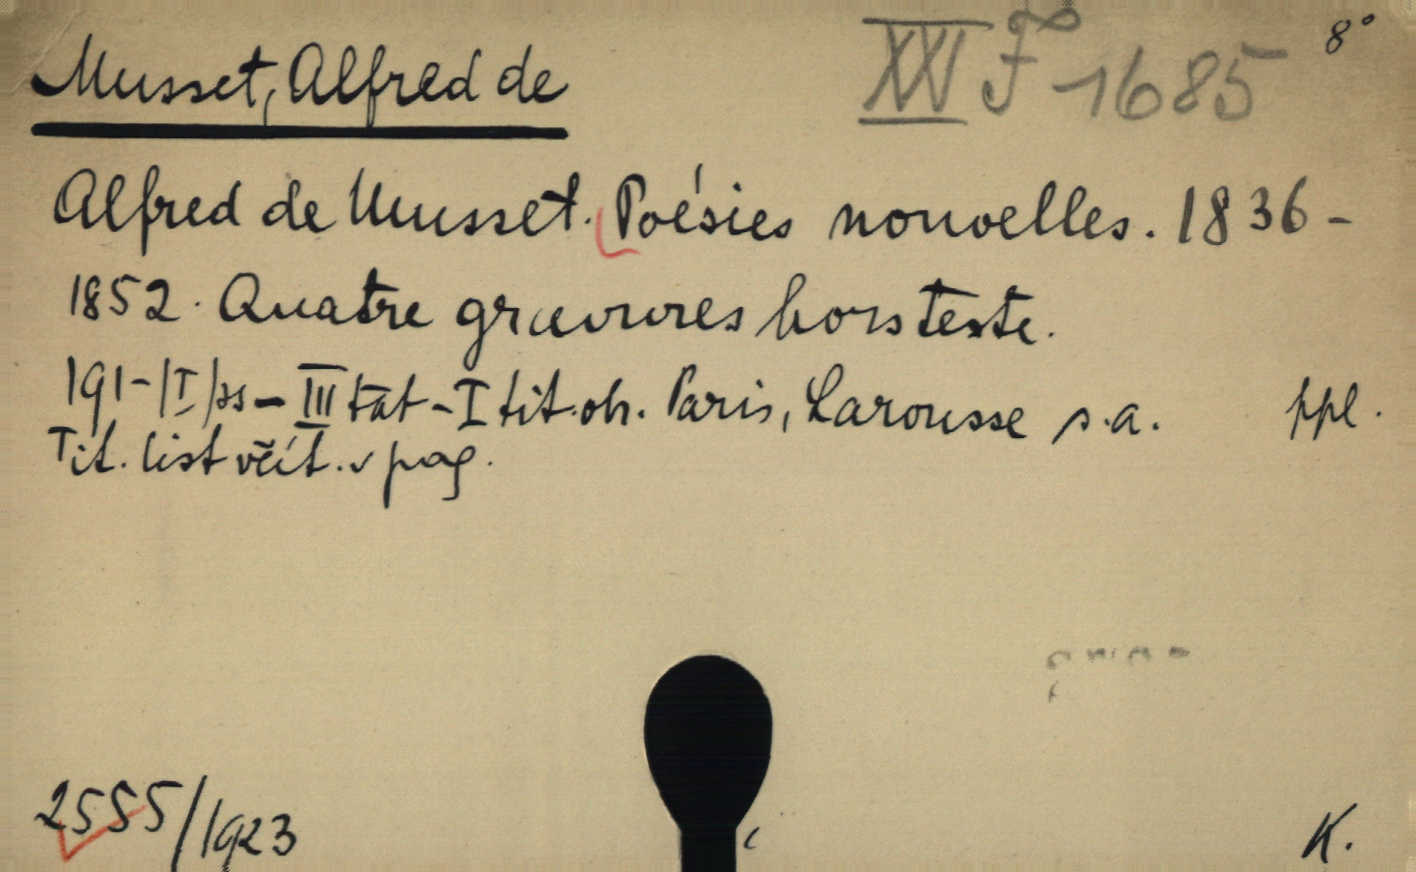 Musset, Alfred de
XXV F 1685
8°
Alfred de Musset. Poésies nouvelles. 1836-
1852. Quatre gravures hors texte.
191-|I|ss-III tab-I tit.ob. Paris, Larousse s.a. ppl.
Tit. list včít. v pag.
2555/1923
K.